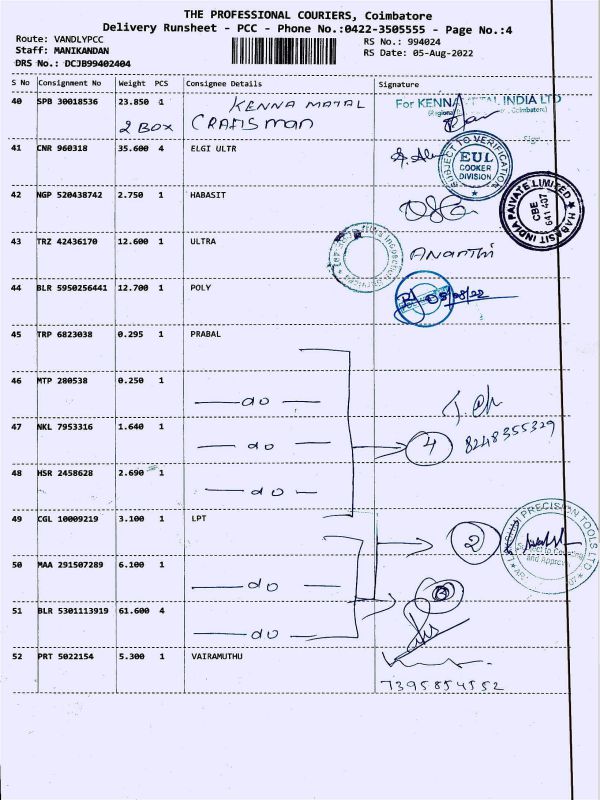 THE PROFESSIONAL COURIERS, Coimbatore
Delivery Runsheet - PCC - Phone No.:0422-3505555 - Page No.:4
Route: VANDLYPCC
Staff: MANIKANDAN
DRS No.: DCJB99402404
RS No.: 994024
RS Date: 05-Aug-2022
S No Consignment No Weight PCS Consignee Details Signature
40 SPB 30018536 23.850 1 KENNA METAL For KENNA INDIA LTD
2 BOX CRAFTSMAN
41 CNR 960318 35.600 4 ELGI ULTR
SUBJECT TO VERIFICATION
EUL
COOKER
DIVISION
42 NGP 520438742 2.750 1 HABASIT
HABASIT INDIA PRIVATE LIMITED
CBE
641 407
43 TRZ 42436170 12.600 1 ULTRA ANANTHI
44 BLR 5950256441 12.700 1 POLY 05/08/22
45 TRP 6823038 0.295 1 PRABAL
46 MTP 280538 0.250 1 — do —
47 NKL 7953316 1.640 1 — do — 4 8248355329
48 HSR 2458628 2.690 1 — do —
49 CGL 10009219 3.100 1 LPT 2
PRECISION TOOLS LTD
50 MAA 291507289 6.100 1 — do —
51 BLR 5301113919 61.600 4 — do —
52 PRT 5022154 5.300 1 VAIRAMUTHU
7395854552